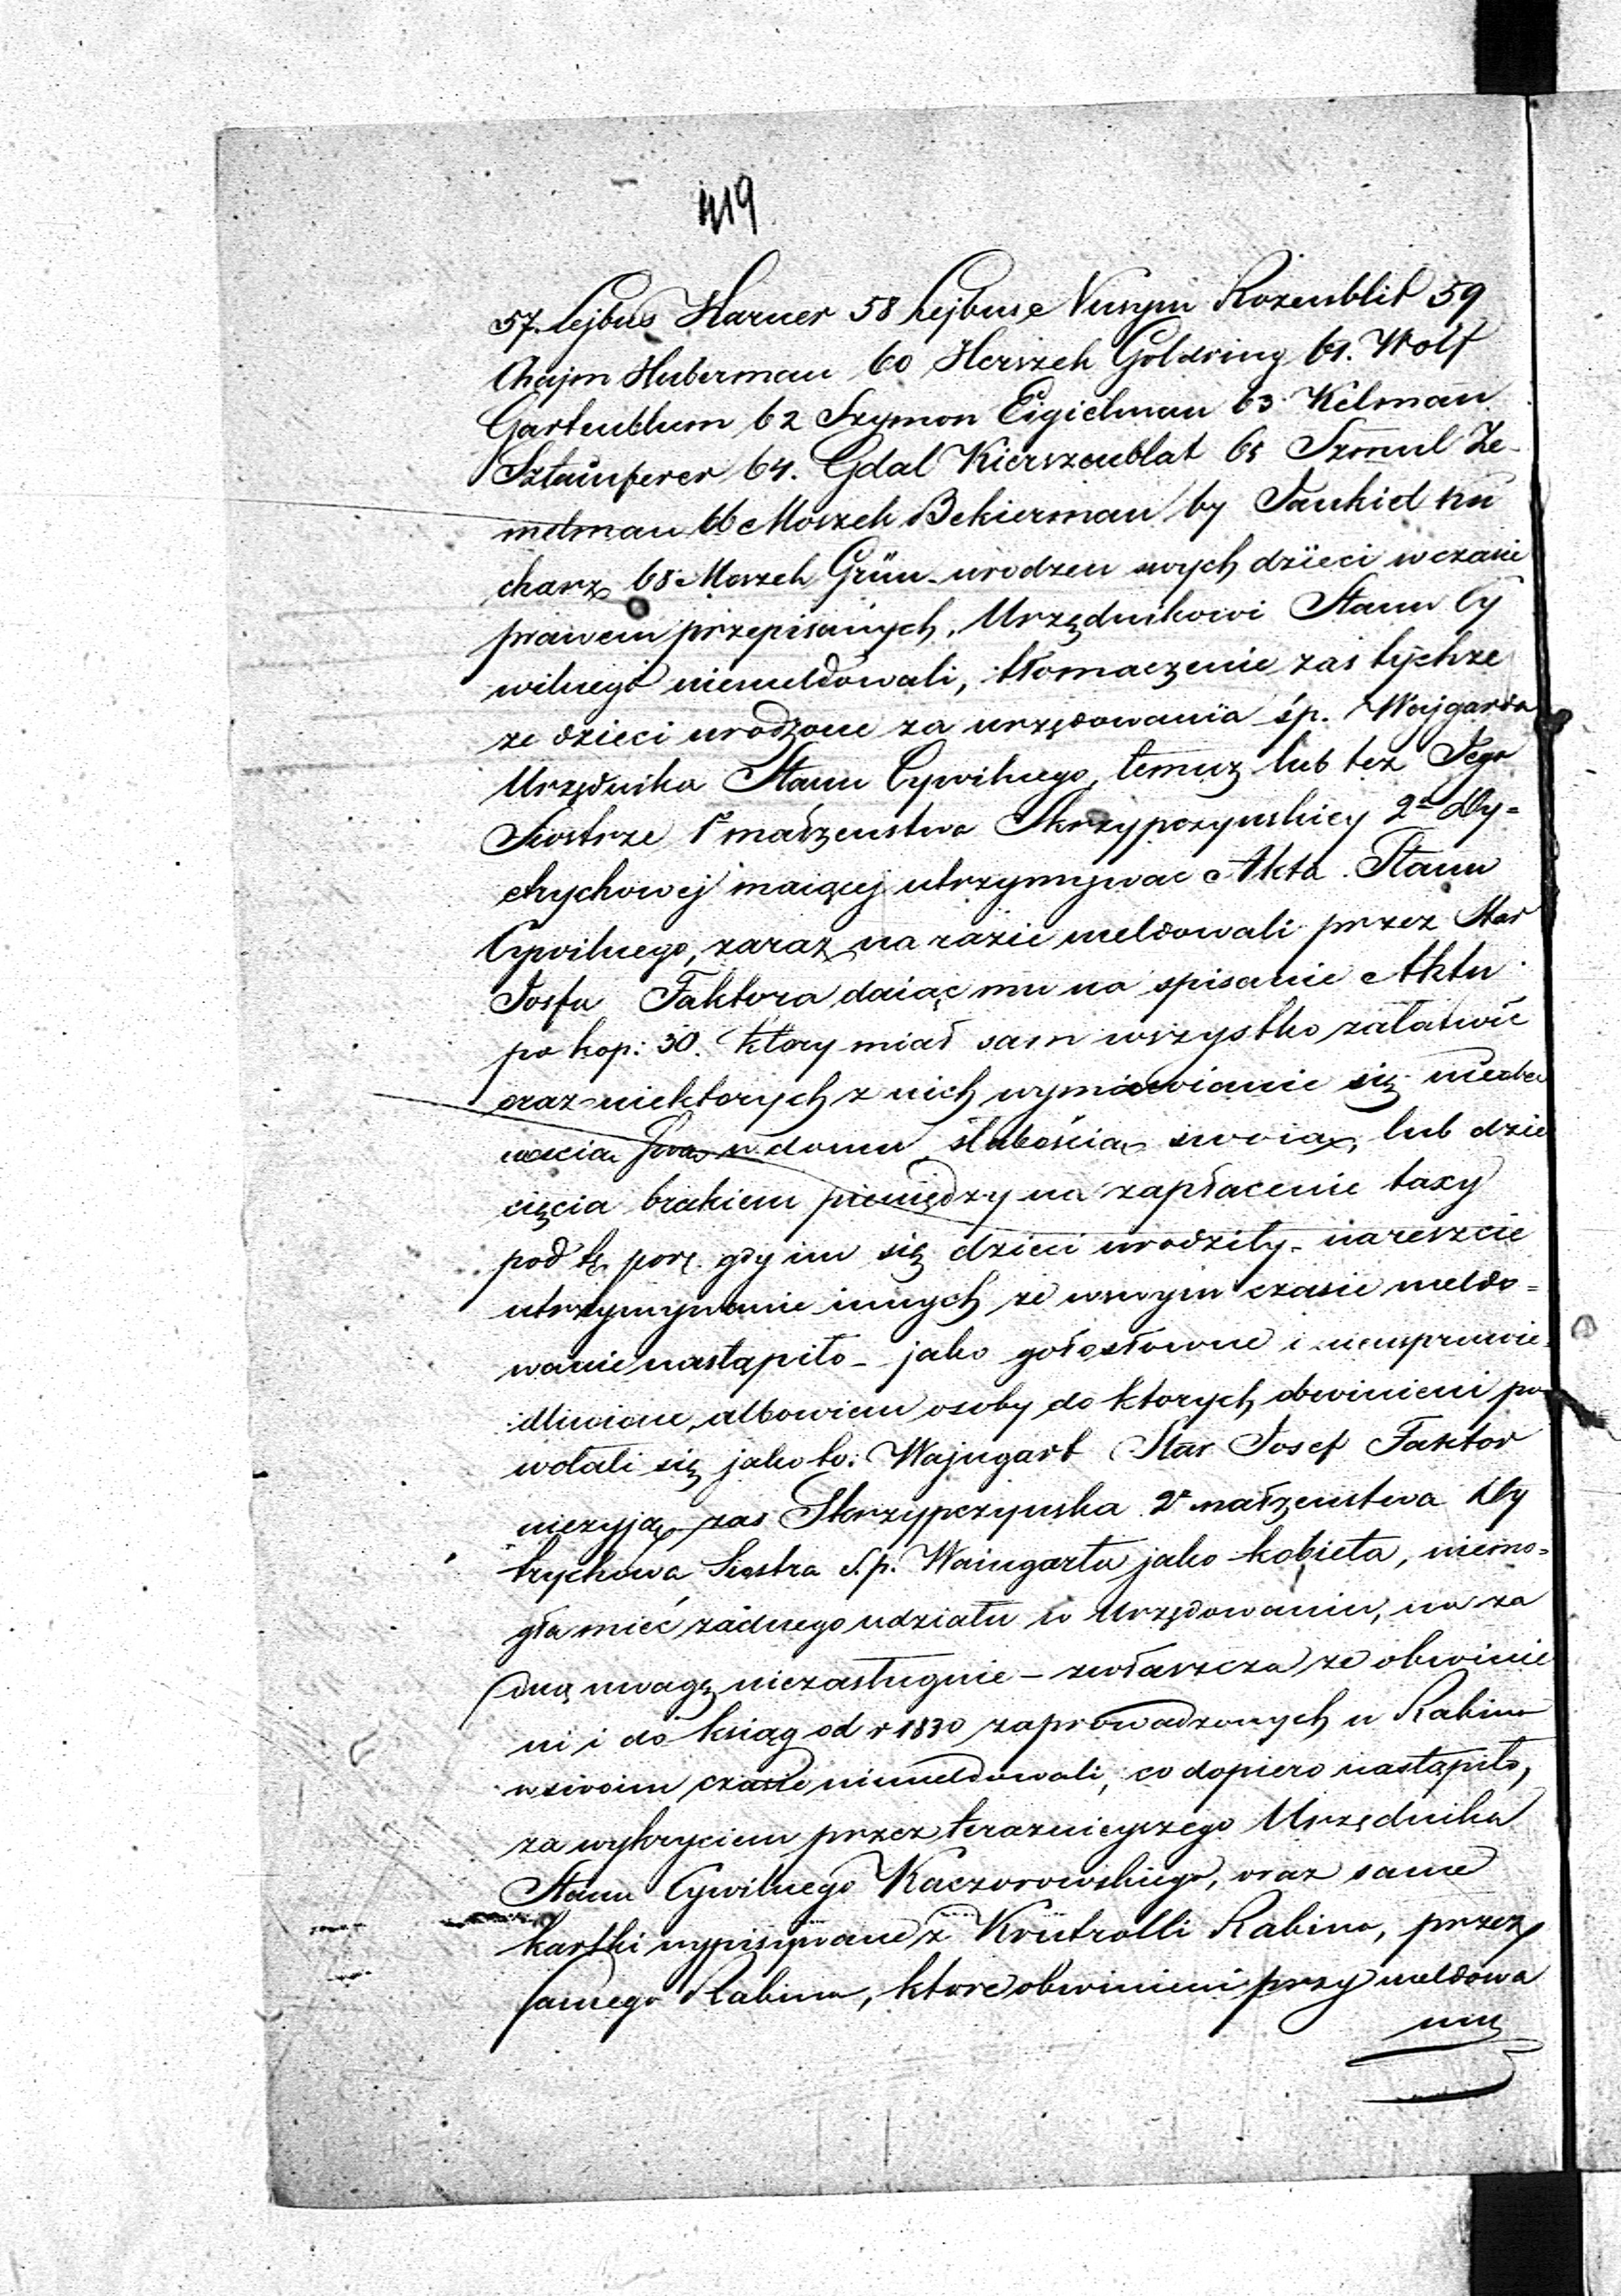 419
57. Lejbus Harner 58 Lejbuse Nusym Rozenblit 59
Chajm Huberman 60 Herszek Goldring 61. Wolf
Gartenblum 62 Szymon Eigielman 63 Kelman
Sztamferer 64. Gdal Kierszenblat 65 Szmul Ze-
melman 66 Moszek Bekierman 67 Jankiel Ku
charz 68 Moszek Grün urodzen swych dzieci w czasie
prawem przepisanych, Urzędnikowi Stanu Cy
wilnego niemeldowali, tłomaczenie zas tychze
ze dzieci urodzone za urzędowania śp. Wajgarta
Urzędnika Stanu Cywilnego, temuz lub tez Jego
Siostrze 1º małzenstwa Skrzypczynskiey 2º Dy=
trychowej maiącey utrzymywac Akta Stanu
Cywilnego, zaraz na razie meldowali przez Star
Josfa Faktora daiąc mu na spisanie Aktu
po kop: 30. ktory miał sam wszystko załatwić
oraz niektorych z nich wymawianie się nieobec
noscią w domu, słabością swoią, lub dzie
cięcia brakiem pieniędzy na zapłacenie taxy
pod tę porę gdy im się dzieci urodziły - nareszcie
utrzymywanie innych ze w swym czasie meldo=
wanie nastąpiło - jako gołosłowne i nieusprawie
dliwione, albowiem osoby do ktorych obwinieni po
wołali się jako to: Wajngart Star Josef Faktor
niezyją zas Skrzypczynska 2º małzenstwa Dy
trychowa Siostra S.p. Waingarta jako kobieta, niemo=
gła mieć zadnego udziału w Urzędowaniu, na za
dną uwagę niezasługuie - zwłaszcza ze obwinie
ni i do ksiąg od r 1830 zaprowadzonych u Rabina
w swoim czasie niemeldowali, co dopiero nastąpiło,
za wykryciem przez terazniejszego Urzędnika
Stanu Cywilnego Kaczorowskiego, oraz same
kartki wypisywane z Kontrolli Rabina, przez
samego Rabina, ktore obwinieni przy meldowa
niu